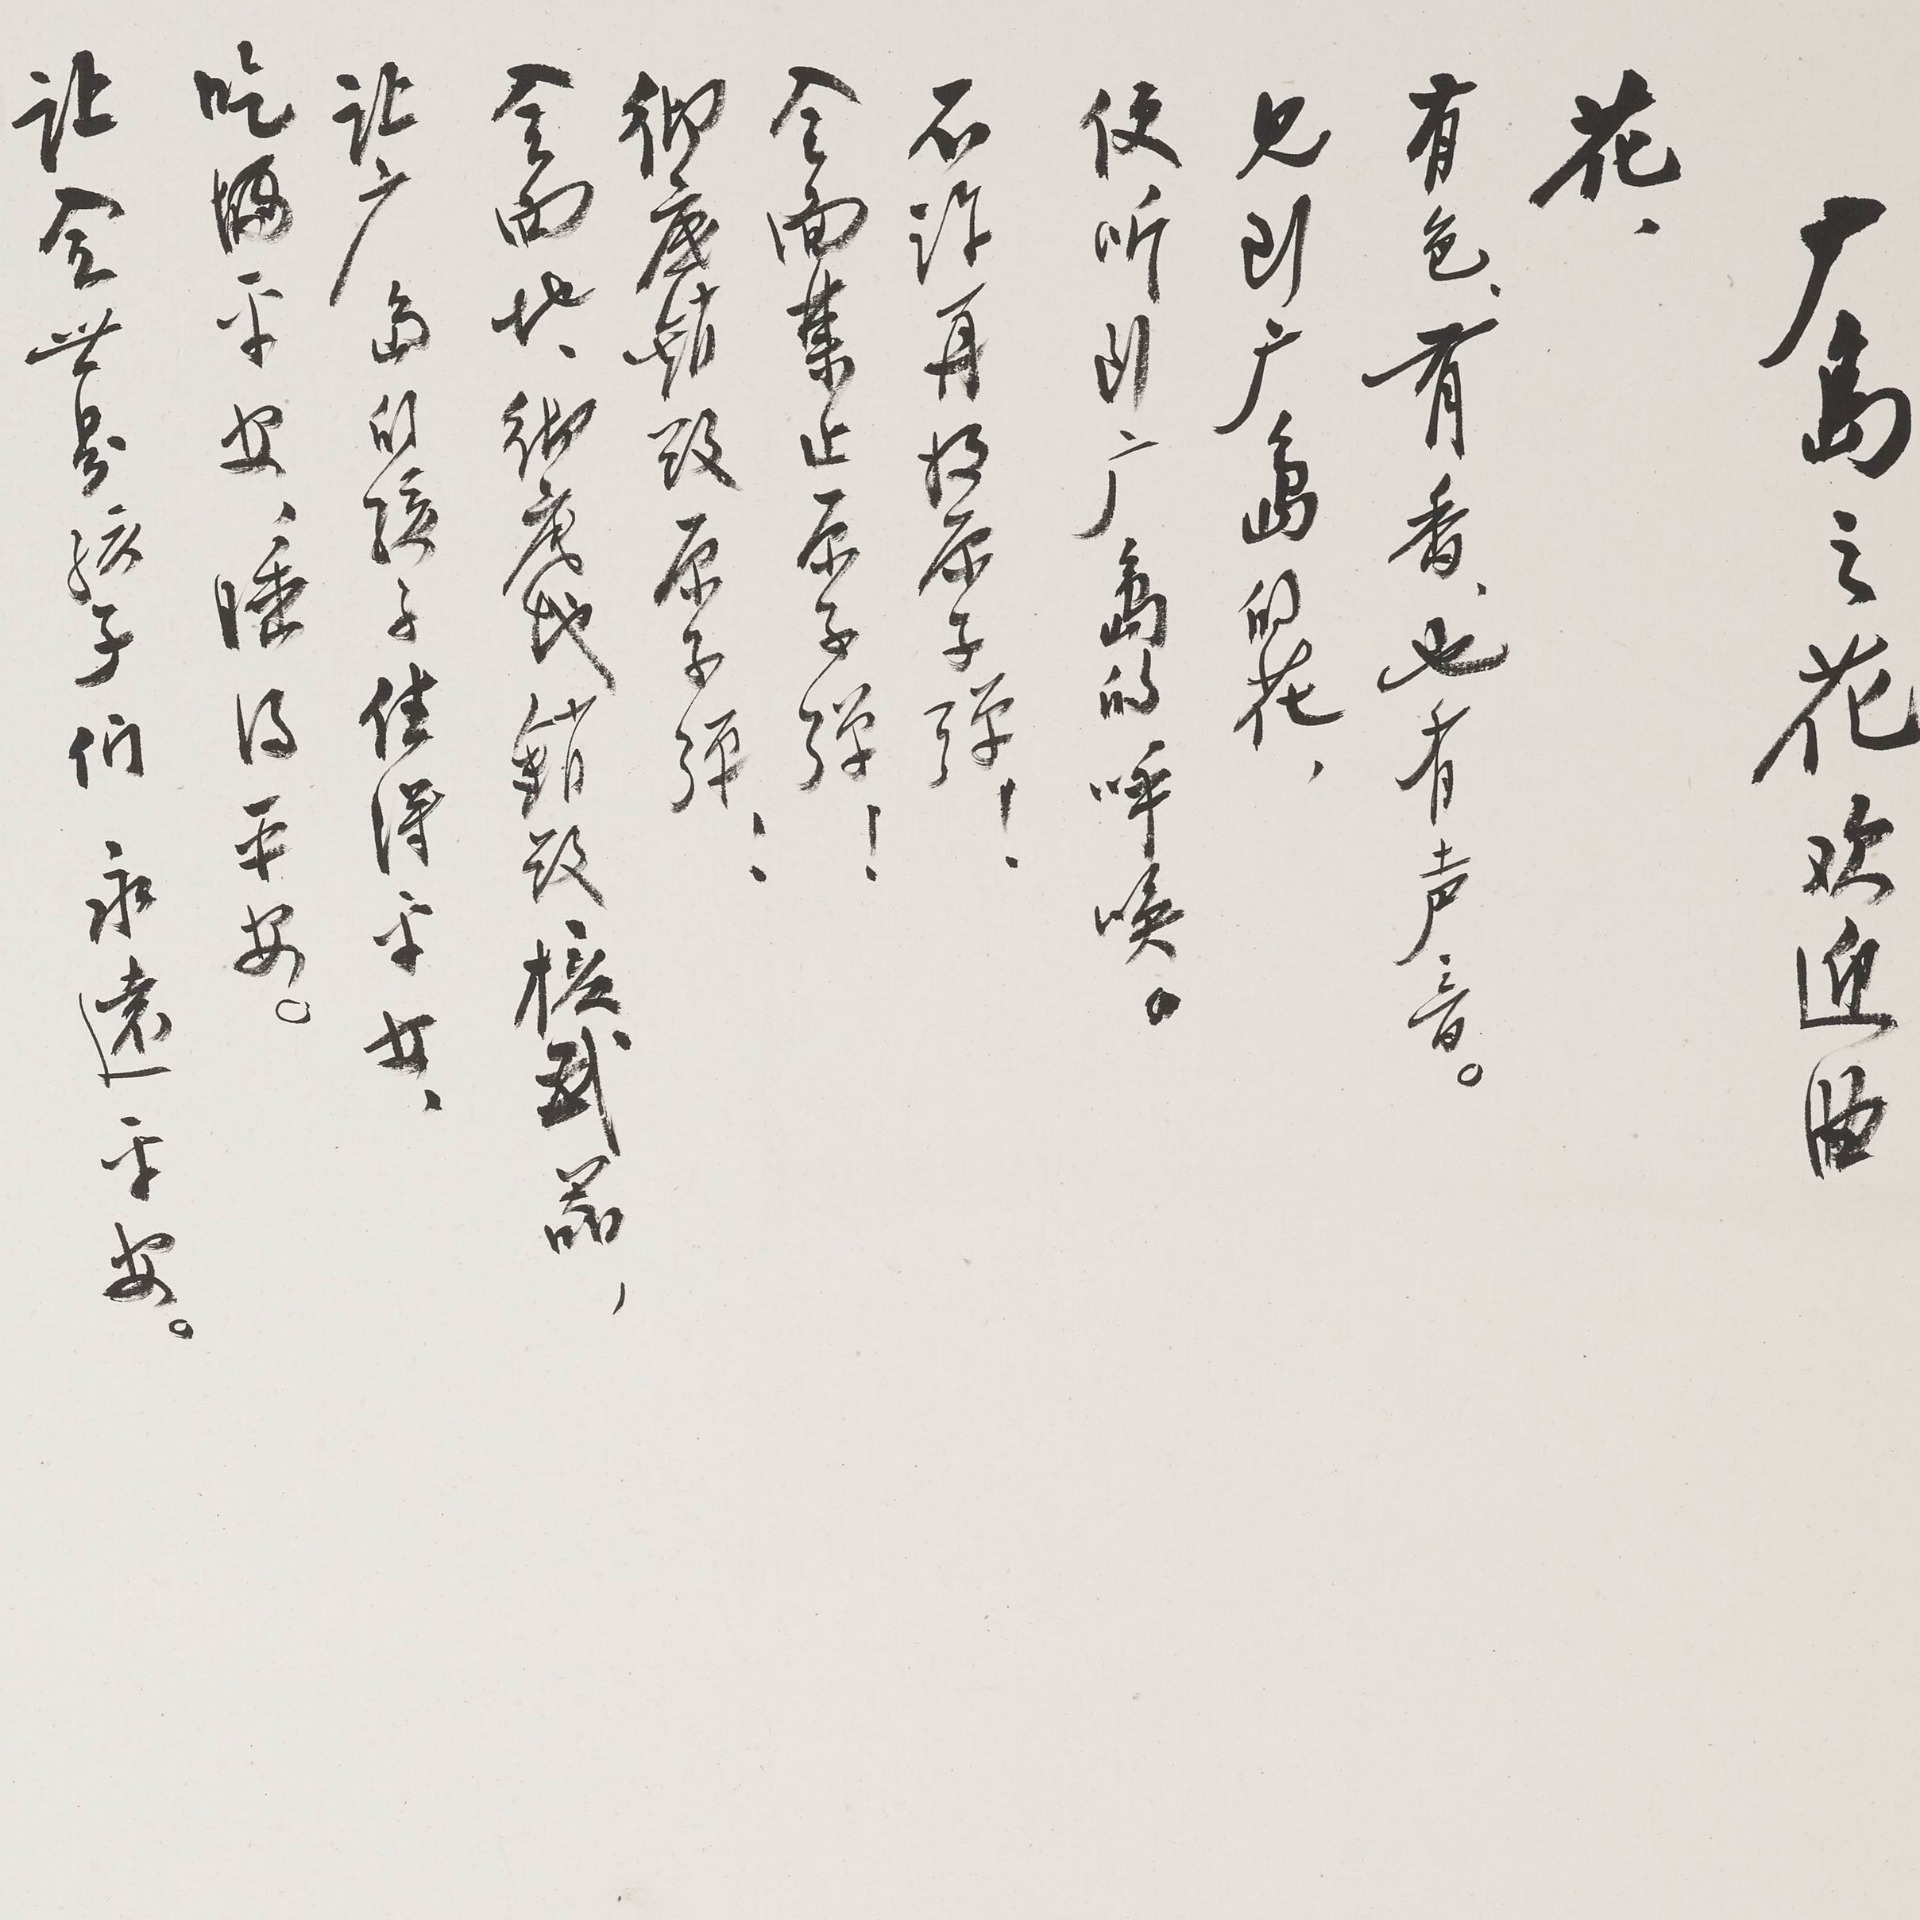 广岛之花欢迎曲
花、
有色、有香、也有声音。
见到广岛的花，
便听到广岛的呼唤。
不许再投原子弹！
全面禁止原子弹！
彻底销毁原子弹！
全面地、彻底地销毁核武器，
让广岛的孩子住得平安、
吃得平安、睡得平安。
让全世界孩子们永远平安。